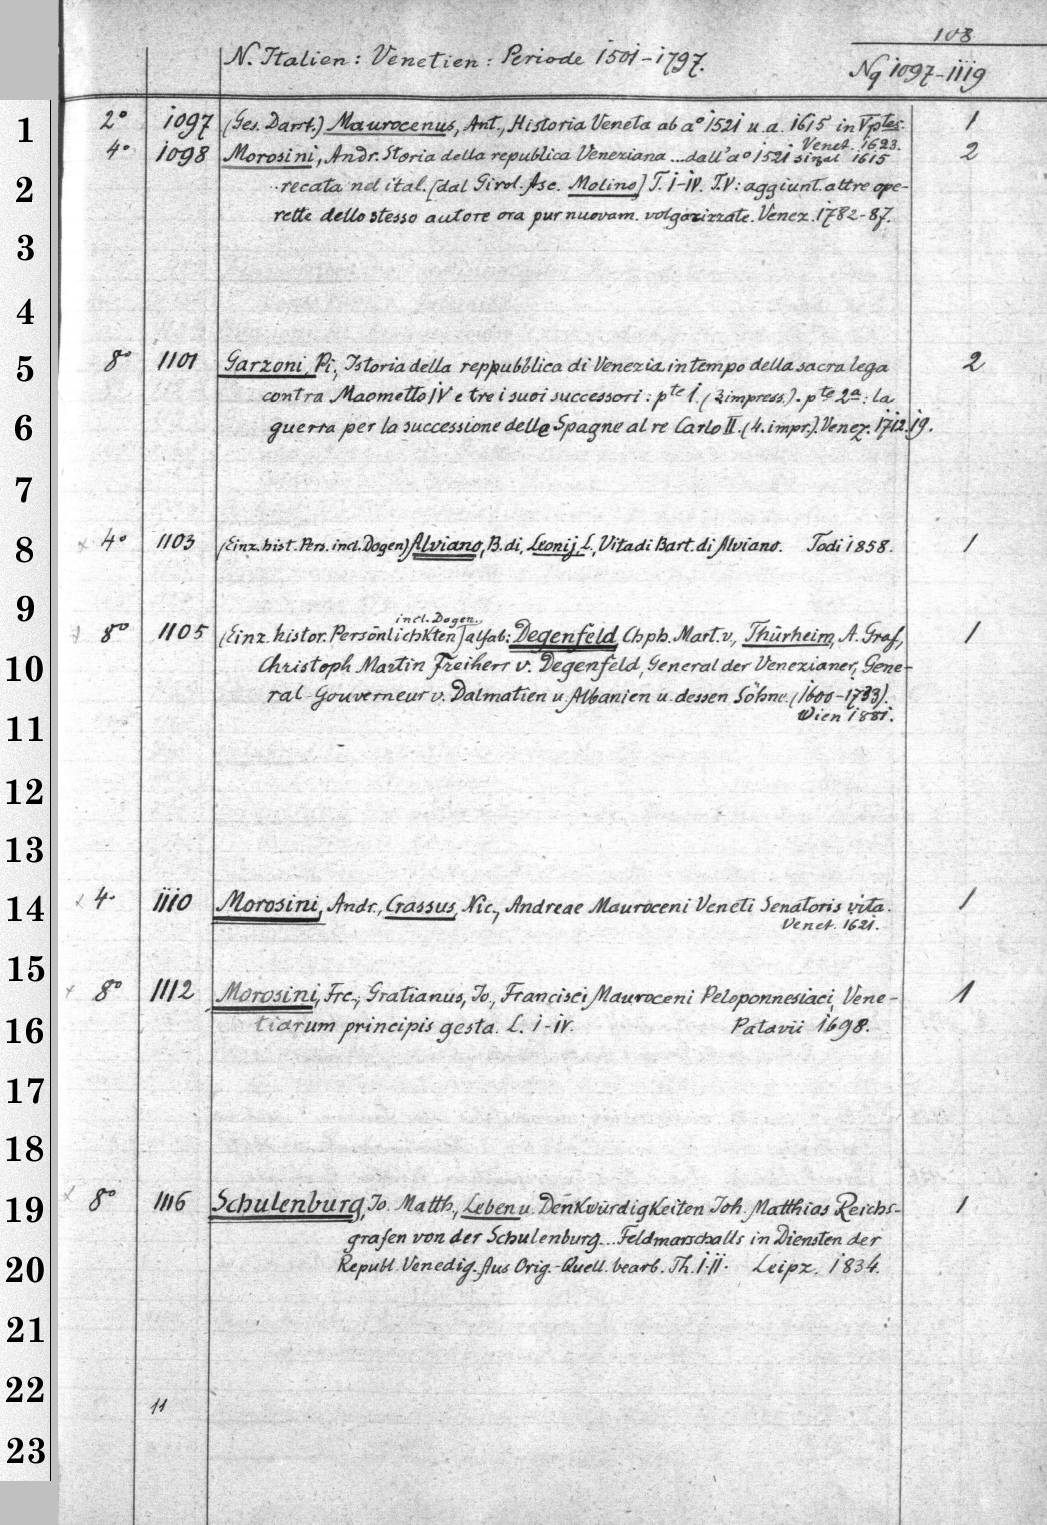 108
N. Italien: Venetien: Periode 1501-1797.
Nq 1097-1119
1 2° 1097 (Ges. Darst.) Maurocenus, Ant., Historia Veneta ab a° 1521 u. a. 1615 in V ptes. 1
Venet. 1623.
4° 1098 Morosini, Andr. Storia della republica Veneziana ... dall'a° 1521 sinal 1615 2
2 recata nel ital. [dal Girol. Asc. Molino] T. I-IV. T.V: aggiunt. altre ope-
rette dello stesso autore ora pur nuovam. volgarizzate. Venez. 1782-87.
3
4
5 8° 1101 Garzoni, Pi., Istoria della reppubblica di Venezia in tempo della sacra lega 2
contra Maometto IV e tre i suoi successori: pte I. (3 impress.). pte 2a: la
6 guerra per la successione delle Spagne al re Carlo II. (4. impr.). Venez. 1712.19.
7
8 × 4° 1103 (Einz. hist. Pers. incl. Dogen) Alviano, B. di, Leonij, L., Vita di Bart. di Alviano. Todi 1858. 1
9
incl. Dogen.
× 8° 1105 (Einz. histor. Persönlichkten) alfab: Degenfeld, Chph. Mart. v., Thürheim, A. Graf, 1
10 Christoph Martin Freiherr v. Degenfeld, General der Venezianer, Gene-
ral-Gouverneur v. Dalmatien u. Albanien u. dessen Söhne. (1600-1733).
11 Wien 1881.
12
13
14 × 4° 1110 Morosini, Andr., Crassus, Nic., Andreae Mauroceni Veneti Senatoris vita. 1
Venet. 1621.
15
× 8° 1112 Morosini, Frc., Gratianus, Jo., Francisci Mauroceni Peloponnesiaci, Vene- 1
16 tiarum principis gesta. L. I-IV. Patavii 1698.
17
18
19 × 8° 1116 Schulenburg, Jo. Matth., Leben u. Denkwürdigkeiten Joh. Matthias Reichs- 1
grafen von der Schulenburg... Feldmarschalls in Diensten der
20 Republ. Venedig. Aus Orig.-Quell. bearb. Th. I.II. Leipz. 1834.
21
22
11
23